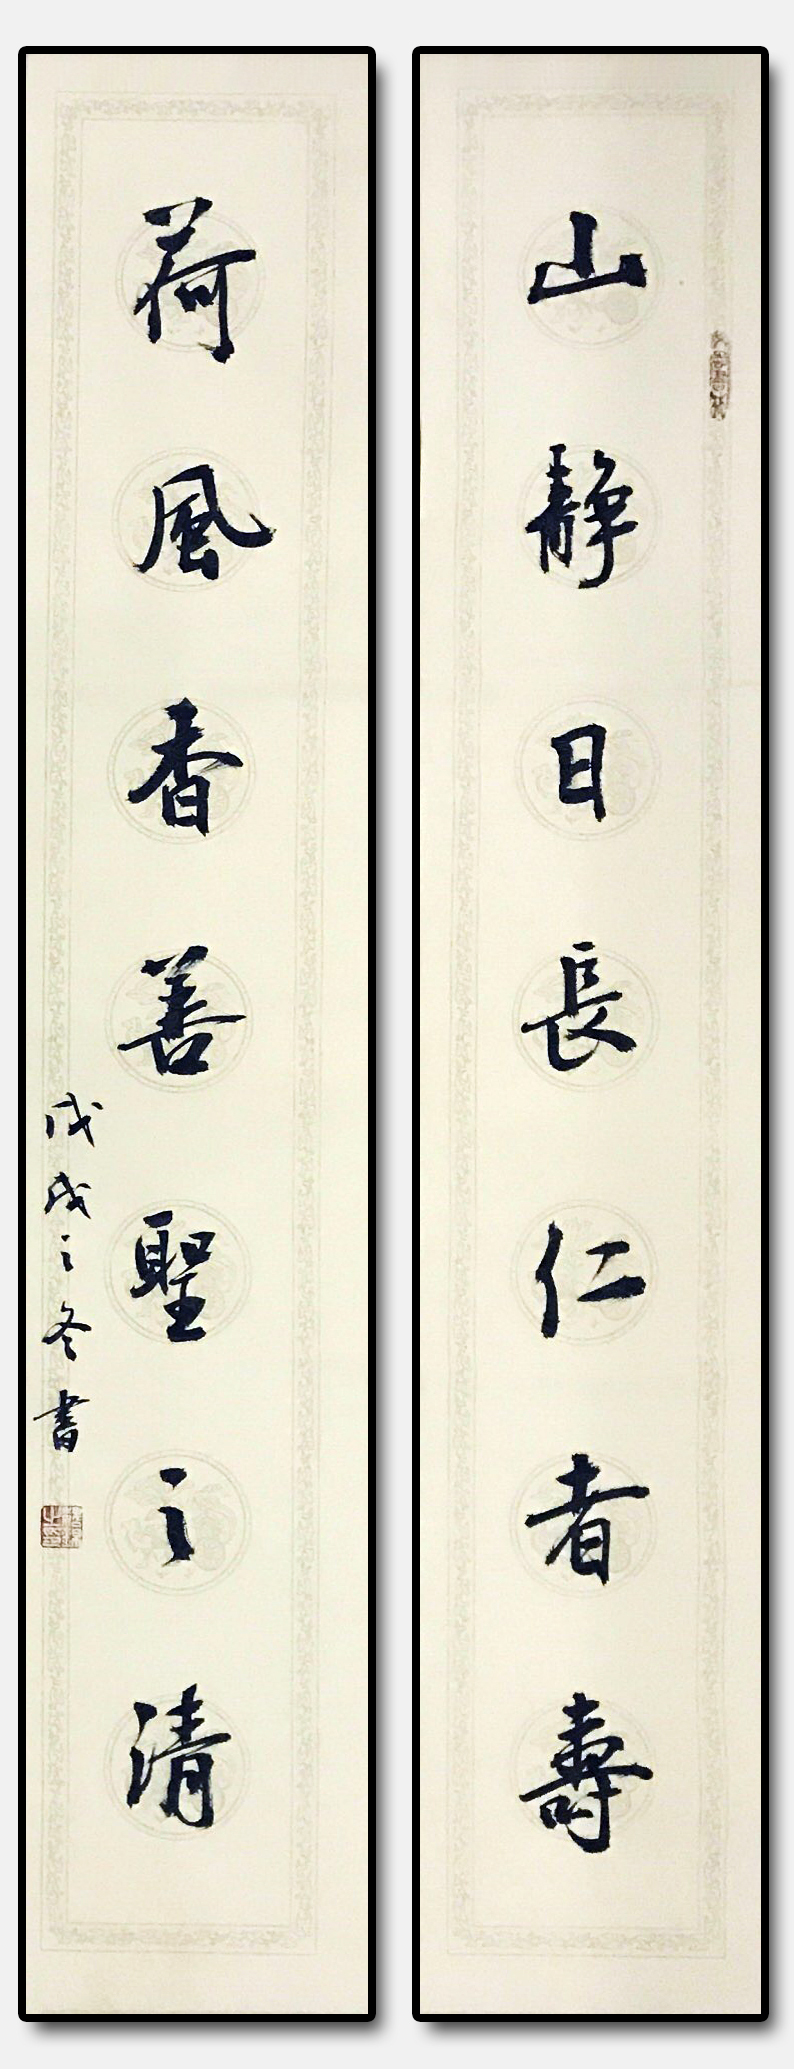 山靜日長仁者壽
荷風香善聖之清
戊戌之冬書